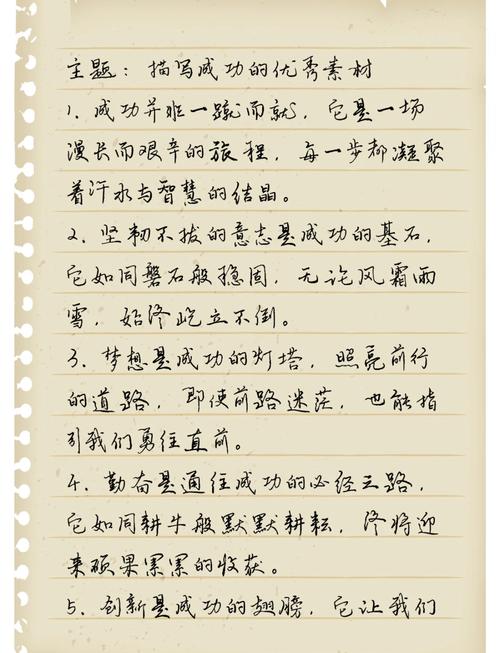 主题：描写成功的优秀素材
1. 成功并非一蹴而就，它是一场
漫长而艰辛的旅程，每一步都凝聚
着汗水与智慧的结晶。
2. 坚韧不拔的意志是成功的基石，
它如同磐石般稳固，无论风霜雨
雪，始终屹立不倒。
3. 梦想是成功的灯塔，照亮前行
的道路，即使前路迷茫，也能指
引我们勇往直前。
4. 勤奋是通往成功的必经之路，
它如同耕牛般默默耕耘，终将迎
来硕果累累的收获。
5. 创新是成功的翅膀，它让我们